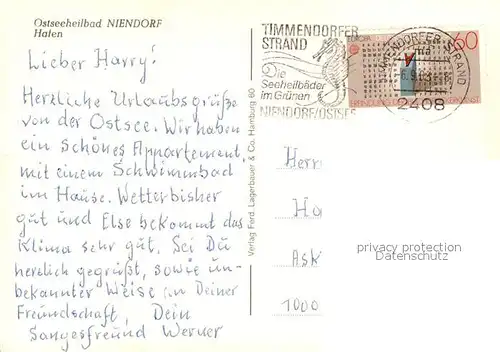 Ostseeheilbad NIENDORF
Hafen
Lieber Harry!
Herzliche Urlaubsgrüße
von der Ostsee. Wir haben
ein schönes Appartement,
mit einem Schwimmbad
im Hause. Wetter bisher
gut und Else bekommt das
Klima sehr gut. Sei Du
herzlich gegrüßt, sowie un-
bekannter Weise an Deiner
Freundschaft, Dein
Sangesfreund Werner
Verlag Ferd. Lagerbauer & Co. Hamburg 60
TIMMENDORFER
STRAND
Die
Seeheilbäder
im Grünen
NIENDORF/OSTSEE
EUROPA
60
TIMMENDORFER STRAND
2408
Herr
Ha
Ask
1000
privacy protection
Datenschutz